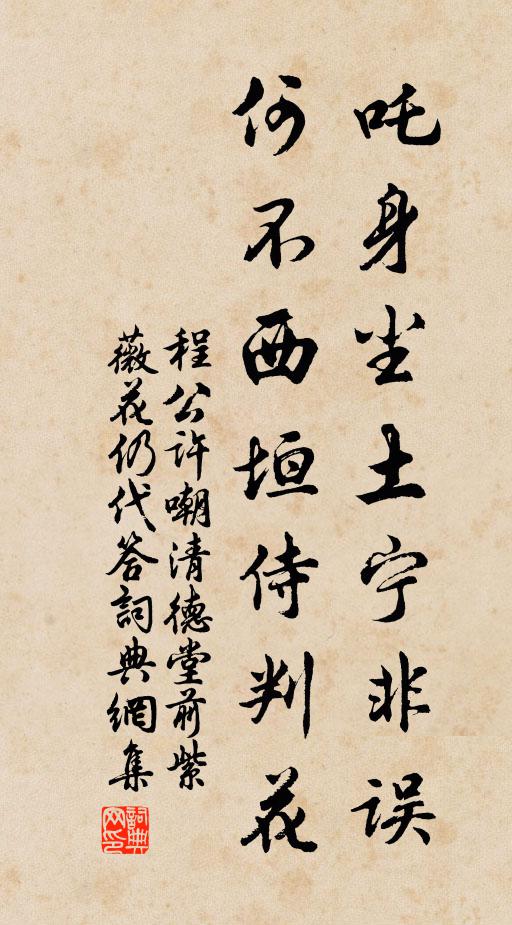 吒身尘土宁非误
何不西垣侍判花
程公许嘲清德堂前紫
薇花仍代答詞典網集
詞典网印